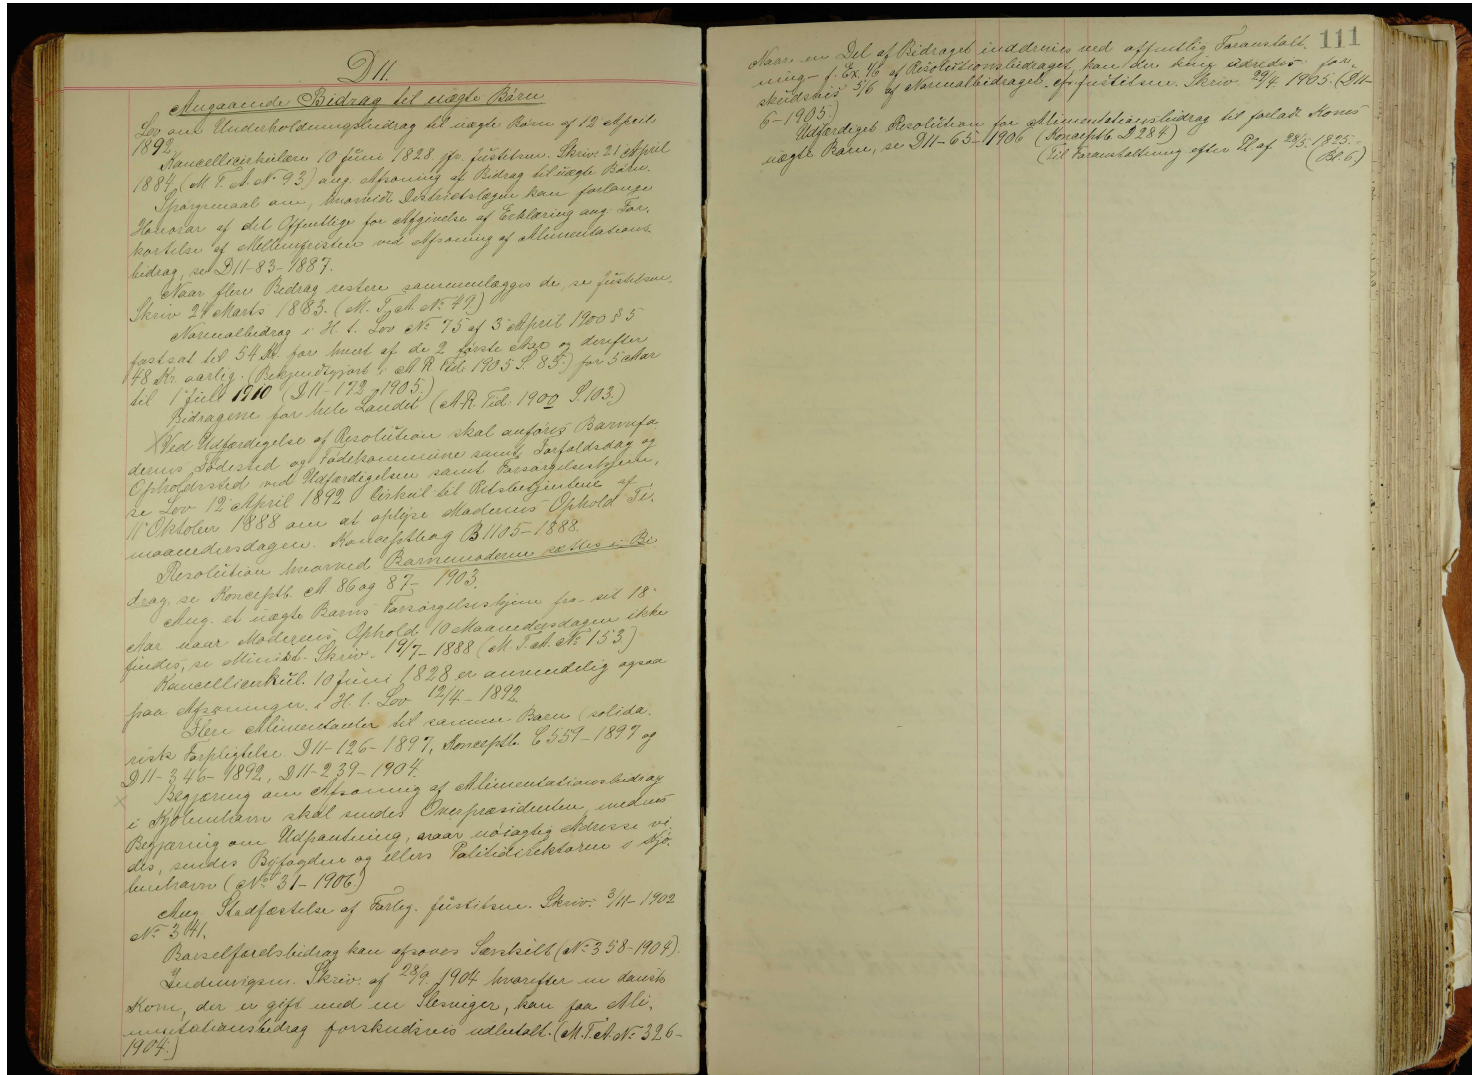 D 11.
Angaaende Bidrag til uægte Børn
Lov om Underholdningsbidrag til uægte Børn af 12 April
1892.
Kancellicirkulære 10 Juni 1828 jfr. Justitsm. Skriv. 21 April
1884, (M. T. A. No 93) ang. Afsoning af Bidrag til uægte Børn.
Spørgsmaal om, hvorvidt Distriktslægen kan forlange
Honorar af det Offentlige for Afgivelse af Erklæring ang. For-
kortelse af Mellemfristen ved Afsoning af Alimentations-
bidrag, se D 11-83-1887.
Naar flere Bidrag restere sammenlægges de, se Justitsm.
Skriv 24 Marts 1883. (M. T. A. No 49)
Normalbidrag i H. t. Lov No 75 af 3 April 1900 § 5
fastsat til 54 Kr. for hvert af de 2 første Aar og derefter
48 Kr. aarlig. (Bekjendtgjort i A. R. Tid. 1905 S. 85.) for 5 Aar
til 1 Juli 1910 (D 11-172-1905.)
Bidragene for hele Landet (A.R. Tid. 1900 S. 103.)
Ved Udfærdigelse af Resolution skal anføres Barnefa
derens Fødested og Fødekommune samt Forfaldsdag og
Opholdssted ved Udfærdigelsen samt Forsørgelseshjem,
se Lov 12 April 1892 Cirkul til Retsbetjentene af
11 Oktober 1888 om at oplyse Moderens Ophold Ti-
maanedersdagen. Konceptbog B 1105-1888.
Resolution hvorved Barnemoderen sættes i Bi
drag, se Konceptb. A 86 og 87 - 1903.
Ang. et uægte Barns Forsørgelseshjem fra sit 18
Aar naar Moderens Ophold 10 Maanedersdagen ikke
findes, se Minist. Skriv. 19/7 - 1888 (M. T. A. No 153)
Kancellicirkul. 10 Juni 1828 er anvendelig ogsaa
paa Afsoninger i H. t. Lov 12/4 - 1892.
Flere Alimentanter til samme Barn (solida-
risk Forpligtelse D 11-126-1897, Konceptb. C 559-1897 og
D 11-346-1892, D 11-239-1904.
Begjæring om Afsoning af Alimentationsbidrag
i Kjøbenhavn skal sendes Overpræsidenten, medens
Begjæring om Udpantning, naar nøiagtig Adresse vi
des, sendes Byfogden og ellers Politidirektøren i Kjø-
benhavn (No 31-1906.)
Ang Stadfæstelse af Forlig. Justitsm. Skriv. 3/11 - 1902
No 341.
Barselfærdsbidrag kan afsones Særskilt (No 358-1904).
Indenrigsm. Skriv. af 28/9 1904 hvorefter en dansk
Kone, der er gift med en Slesviger, kan faa Ali-
mentationsbidrag forskudsvis udbetalt. (M.T.A. No 326-
1904.)
111
Naar en Del af Bidraget inddrives ved offentlig Foranstalt-
ning - f. Ex. 1/6 af Resolutionsbidraget, kan der kun udredes for-
skudsvis 5/6 af Normalbidraget. cfr. Justitsm. Skriv. 29/4 1905. (D 11-
6-1905)
Udfærdiget Resolution for Alimentationsbidrag til forladt Kones
uægte Barn, se D 11-65-1906 (Konceptb D 284)
(til Foranstaltning efter Pl af 28/5 1825.-
(Bl. 6)